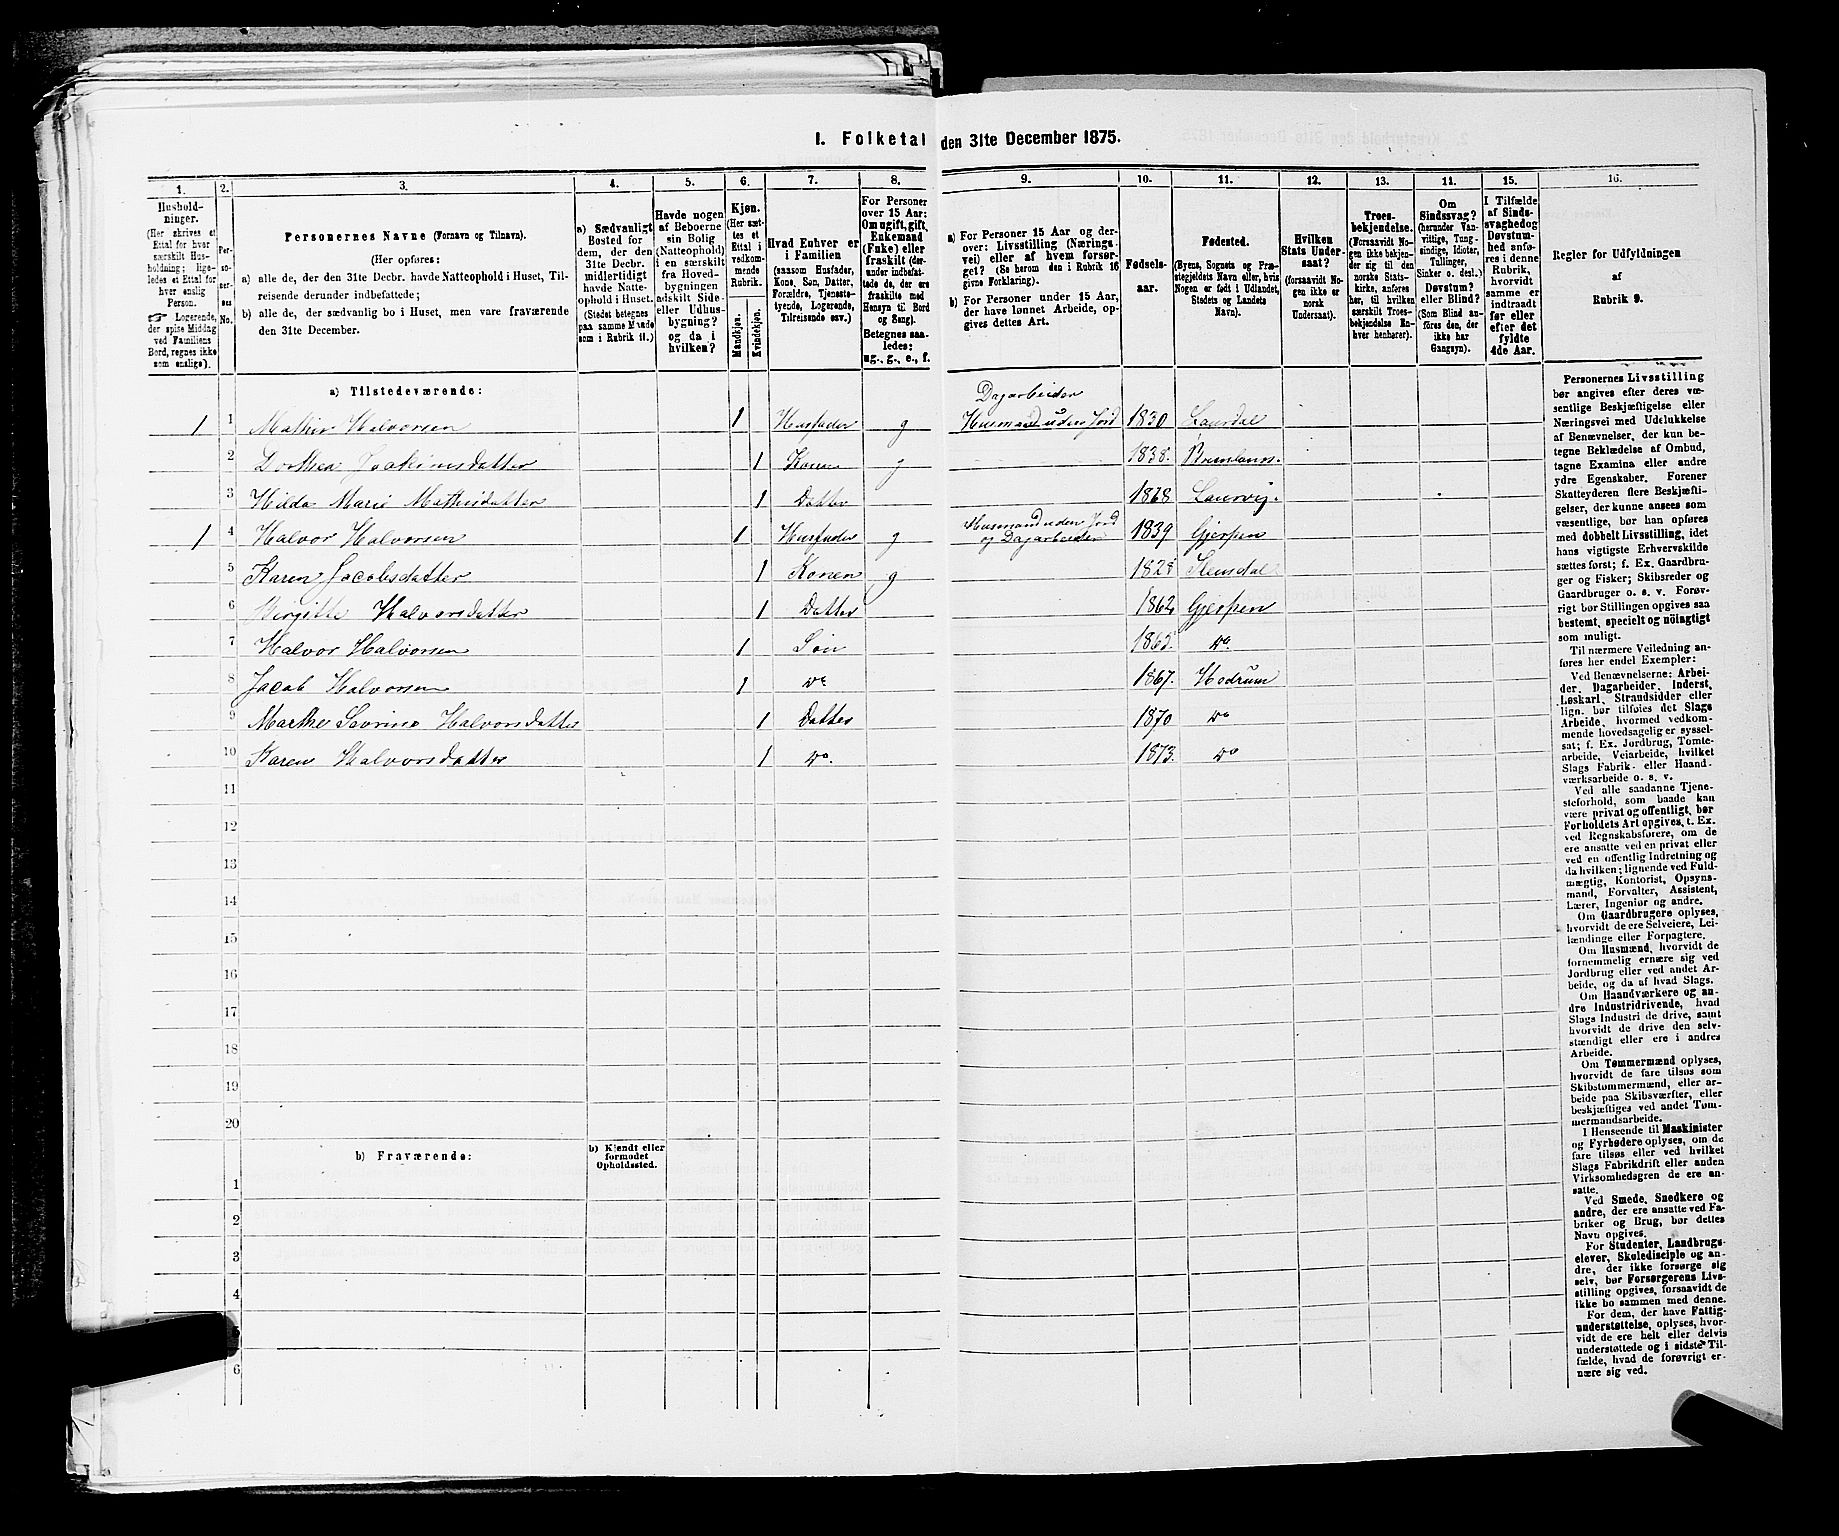 I. Folketal den 31te December 1875.
1. 2. 3. 4. 5. 6. 7. 8. 9. 10. 11. 12. 13. 14. 15. 16.
Husholdninger.
(Her skrives et
Ettal for hver
særskilt Husholdning; ligeledes
et Ettal for
hver enslig
Person.
☞ Logerende,
der spise Middag
ved Familiens
Bord, regnes ikke
som enslige).
Personernes No.
Personernes Navne (Fornavn og Tilnavn).
(Her opføres:
a) alle de, der den 31te Decbr. havde Natteophold i Huset, Tilreisende
derunder indbefattede;
b) alle de, der sædvanlig bo i Huset, men vare fraværende
den 31te December.
a) Sædvanligt
Bosted for
dem, der den
31te Decbr.
midlertidigt
havde Natteophold
i Huset.
(Stedet betegnes
paa samme Maade
som i Rubrik 11.)
Havde nogen
af Beboerne
sin Bolig
(Natteophold)
i en særskilt
fra Hovedbygningen
adskilt Side-
eller Udhusbygning?
og da i
hvilken?
Kjøn.
(Her sættes
et
Ettal i
vedkommende
Rubrik.
Mandkjøn.
Kvindekjøn.
Hvad Enhver er
i Familien
(saasom Husfader,
Kone, Søn, Datter,
Forældre, Tjenestetyende,
Logerende,
Tilreisende osv.)
For Personer
over 15 Aar:
Om ugift, gift,
Enkemand
(Enke) eller
fraskilt (derunder
indbefattede
de, der ere
fraskilte med
Hensyn til Bord
og Seng).
Betegnes saaledes:
ug., g., e., f.
a) For Personer 15 Aar og derover:
Livsstilling (Næringsvei)
eller af hvem forsørget?
(Se herom den i Rubrik 16
givne Forklaring).
b) For Personer under 15 Aar,
der have lønnet Arbeide, opgives
dettes Art.
Fødselsaar.
Fødested.
(Byens, Sognets og Præstegjeldets
Navn eller, hvis
Nogen er født i Udlandet,
Stedets og Landets
Navn).
Hvilken
Stats Undersaat?
(forsaavidt Nogen
ikke er
norsk
Undersaat).
Troesbekjendelse.
(Forsaavidt Nogen
ikke bekjender
sig til den
norske Statskirke,
anføres
her, til hvilken
særskilt Troesbekjendelse
Enhver
henhører).
Om
Sindssvag?
(herunder Vanvittige,
Tungsindige,
Idioter,
Tullinger,
Sinker o. desl.)
Døvstum?
eller Blind?
(Som Blind anføres
den, der
ikke har
Gangsyn).
I Tilfælde
af Sindssvaghed
og
Døvstumhed
anføres
i denne
Rubrik,
hvorvidt
samme er
indtraadt
før eller
efter det
fyldte
4de Aar.
Regler for Udfyldningen
af
Rubrik 9.
a) Tilstedeværende:
Dagarbeider
1 1 Mathis Halvorsen 1 Husfader g Husmand uden Jord 1830 Laurdal
2 Dorthea Joakimsdatter 1 Konen g 1838.
3 Hilda Marie Mathisdatter 1 Datter 1868 Laurvig.
1 4 Halvor Halvorsen 1 Husfader g Husmand uden Jord
og Dagarbeider 1839 Gjerpen
5 Karen Jacobsdatter 1 Konen g 1828
6 Birgitte Halvorsdatter 1 Datter 1862 Gjerpen
7 Halvor Halvorsen 1 Søn 1865. Do.
8 Jacob Halvorsen 1 Do 1867. Hedrum
9 Marthe Severine Halvorsdatter 1 Datter 1870 Do
10 Karen Halvorsdatter 1 Do. 1873. Do
11
12
13
14
15
16
17
18
19
20
b) Fraværende:
b) Kjendt eller
formodet
Opholdssted.
1
2
3
4
6
Personernes Livsstilling
bør angives efter deres væsentlige
Beskjæftigelse eller
Næringsvei med Udelukkelse
af Benævnelser, der kun betegne
Beklædelse af Ombud,
tagne Examina eller andre
ydre Egenskaber. Forener
Skatteyderen flere Beskjæftigelser,
der kunne ansees som
væsentlige, bør han opføres
med dobbelt Livsstilling, idet
hans vigtigste Erhvervskilde
sættes først; f. Ex. Gaardbruger
og Fisker; Skibsreder og
Gaardbruger o. s. v. Forøvrigt
bør Stillingen opgives saa
bestemt, specielt og nøiagtigt
som muligt.
Til nærmere Veiledning anføres
her endel Exempler:
Ved Benævnelserne: Arbeider,
Dagarbeider, Inderst,
Løskarl, Strandsidder eller
lign. bør tilføies det Slags
Arbeide, hvormed vedkommende
hovedsagelig er sysselsat;
f. Ex. Jordbrug, Tomtearbeide,
Veiarbeide, hvilket
Slags Fabrik- eller Haandværksarbeide
o. s. v.
Ved alle saadanne Tjenesteforhold,
som baade kan
være privat og offentligt, bør
Forholdets Art opgives, t. Ex.
ved Regnskabsførere, om de
ere ansatte ved en privat eller
ved en offentlig Indretning og
da hvilken; lignende ved Fuldmægtig,
Kontorist, Opsynsmand,
Forvalter, Assistent,
Lærer, Ingeniør og andre.
Om Gaardbrugere oplyses,
hvorvidt de ere Selveiere, Leilændinge
eller Forpagtere.
Om Husmænd, hvorvidt de
fornemmelig ernære sig ved
Jordbrug eller ved andet Arbeide,
og da af hvad Slags.
Om Haandværkere og andre
Industridrivende, hvad
Slags Industri de drive, samt
hvorvidt de drive den selvstændigt
eller ere i andres
Arbeide.
Om Tømmermænd oplyses,
hvorvidt de fare tilsøs som
Skibstømmermænd, eller arbeide
paa Skibsværfter, eller
beskjæftiges ved andet Tømmermandsarbeide.
I Henseende til Maskinister
og Fyrbødere oplyses, om de
fare tilsøs eller ved hvilket
Slags Fabrikdrift eller anden
Virksomhedsgren de ere ansatte.
Ved Smede, Snedkere og
andre, der ere ansatte ved Fabriker
og Brug, bør dettes
Navn opgives.
For Studenter, Landbrugselever,
Skoledisciple og andre,
der ikke forsørge sig
selv, bør Forsørgerens Livsstilling
opgives, forsaavidt de
ikke bo sammen med denne.
For dem, der have Fattigunderstøttelse,
oplyses, hvorvidt
de ere helt eller delvis
understøttede og i sidste Tilfælde,
hvad de forøvrigt ernære
sig ved.